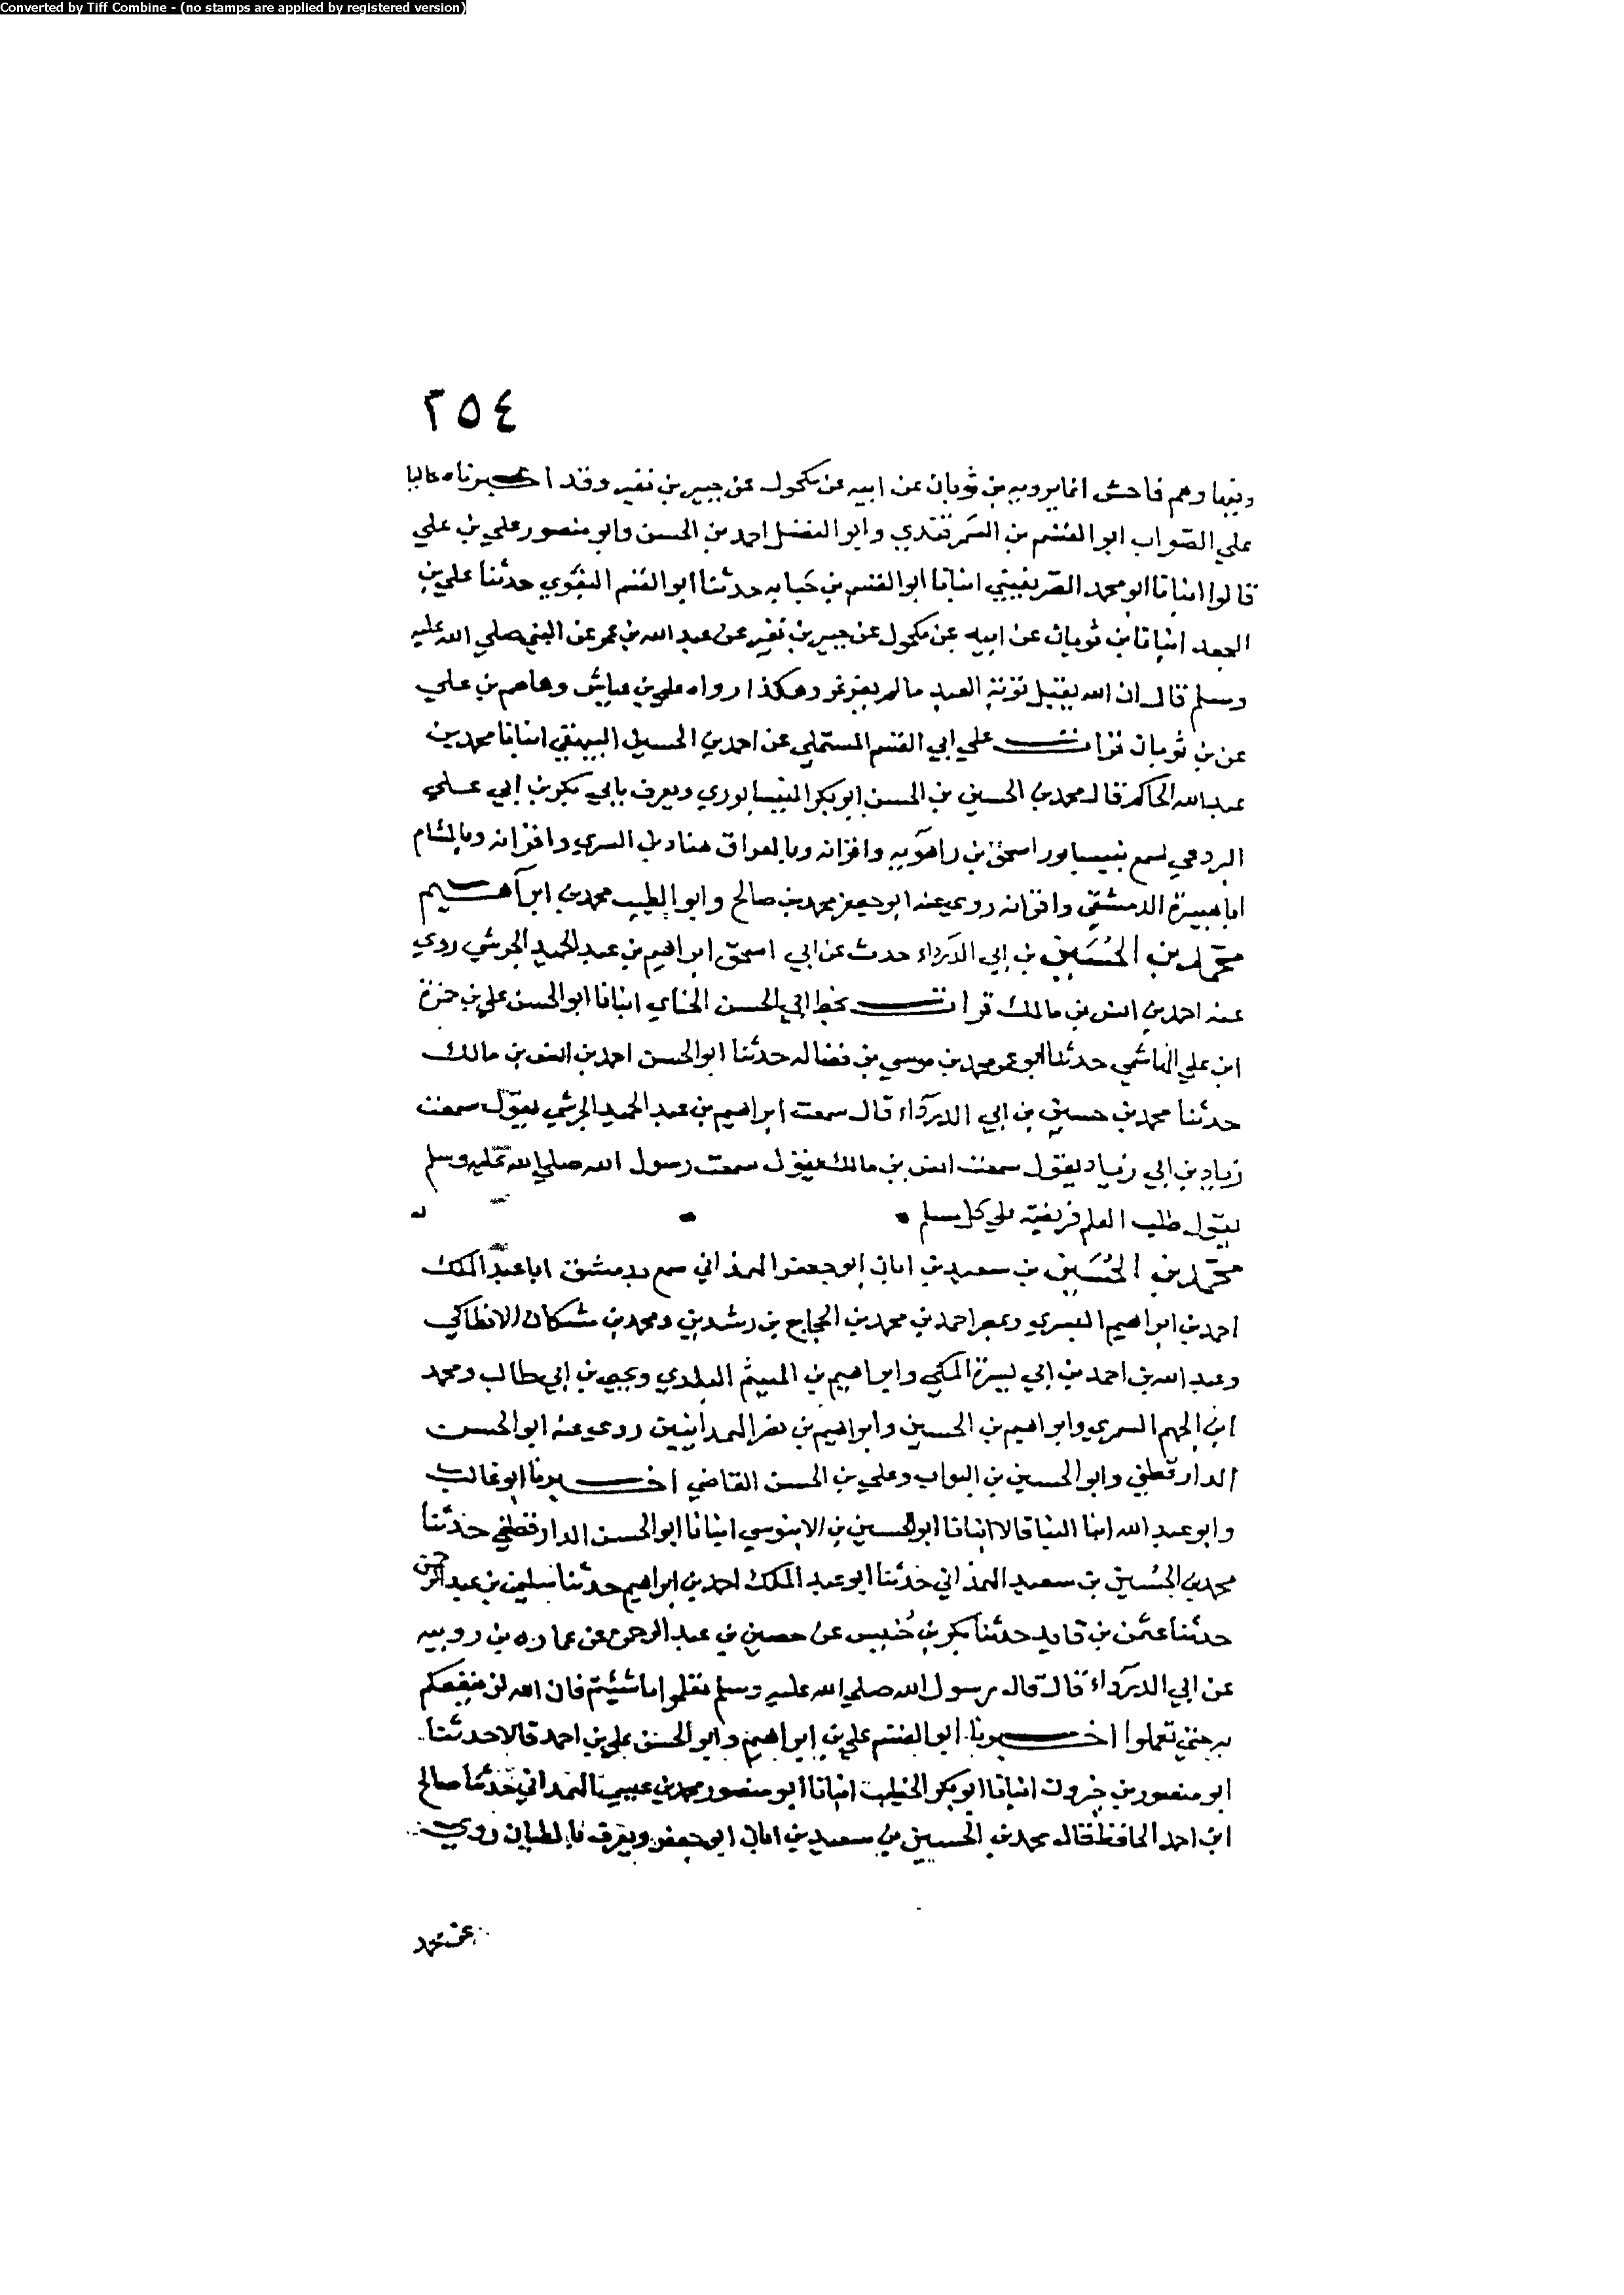 Converted by Tiff Combine - (no stamps are applied by registered version)
٣٥٤
وفيها وهم فاحش انما يرويه بن ثوبان عن ابيه عن مكحول عن جبير بن نفير وقد اخبرناه عاليا
علي الصواب ابو القسم بن السمرقندي وابو الفضل احمد بن الحسن وابو منصور علي بن علي
قالوا انبانا ابو محمد الصريفيني انبانا ابو القسم بن حبابه حدثنا ابو القسم البغوي حدثنا علي بن
الجعد انبانا بن ثوبان عن ابيه عن مكحول عن جبير بن نفير عن عبد الله بن عمر عن النبي صلي الله عليه
وسلم قال ان الله يقبل توبة العبد ما لم يغرغر وهكذا رواه علي بن عياش وعاصم بن علي
عن بن ثوبان قرات علي ابي القسم المستملي عن احمد بن الحسين البيهقي انبانا محمد بن
عبد الله الحاكم قال محمد بن الحسين بن الحسن ابو بكر النيسابوري ويعرف بابي بكر بن ابي علي
سمع بنيسابور اسحق بن راهويه واقرانه وبالعراق هناد بن السري واقرانه وبالشام
ابا هبيرة الدمشقي واقرانه روي عنه ابو جعفر محمد بن صالح وابو الطيب محمد بن ابراهيم
محمد بن الحسين بن ابي الدرداء حدث عن ابي اسحق ابراهيم بن عبد الحميد الجرشي روي
عنه احمد بن انس بن مالك قرات بخط ابي الحسن الحناي انبانا ابو الحسن علي بن حمزة
ابن علي الهاشمي حدثنا ابو عمر محمد بن موسي بن فضاله حدثنا ابو الحسن احمد بن انس بن مالك
حدثنا محمد بن حسين بن ابي الدرداء قال سمعت ابراهيم بن عبد الحميد الجرشي يقول سمعت
زياد بن ابي زياد يقول سمعت انس بن مالك يقول سمعت رسول الله صلي الله عليه وسلم
يقول طلب العلم فريضة علي كل مسلم
محمد بن الحسين بن سعيد بن ابان ابو جعفر الهمذاني سمع بدمشق ابا عبد الملك
احمد بن ابراهيم البسري وبمصر احمد بن محمد بن الحجاج بن رشدين ومحمد بن شكان الانطاكي
وعبد الله بن احمد بن ابي ميسرة المكي وابراهيم بن الهيثم البلدي ويحيي بن ابي طالب ومحمد
ابن الجهم السمري وابراهيم بن الحسين وابراهيم بن نصر الهمدانيين روي عنه ابو الحسن
الدارقطني وابو الحسين بن البواب وعلي بن الحسن القاضي اخبرنا ابو غالب
وابو عبد الله ابنا البنا قالا انبانا ابو الحسين بن الابنوسي انبانا ابو الحسن الدارقطني حدثنا
محمد بن الحسين بن سعيد الهمذاني حدثنا ابو عبد الملك احمد بن ابراهيم حدثنا سليمن بن عبد الرحمن
حدثنا عثمن بن قايد حدثنا بكر بن خنيس عن حصين بن عبد الرحمن عن عماره بن رويبه
عن ابي الدرداء قال قال رسول الله صلي الله عليه وسلم تعلموا ما شيتم فان الله لن ينفعكم
به حتي تعملوا اخبرنا ابو القسم علي بن ابراهيم وابو الحسن علي بن احمد قالا حدثنا
ابو منصور بن خيرون انبانا ابو بكر الخطيب انبانا ابو منصور محمد بن عيسي الهمداني حدثنا صالح
ابن احمد الحافظ قال محمد بن الحسين بن سعيد بن ابان ابو جعفر ويعرف بالطيان روي
عن محمد